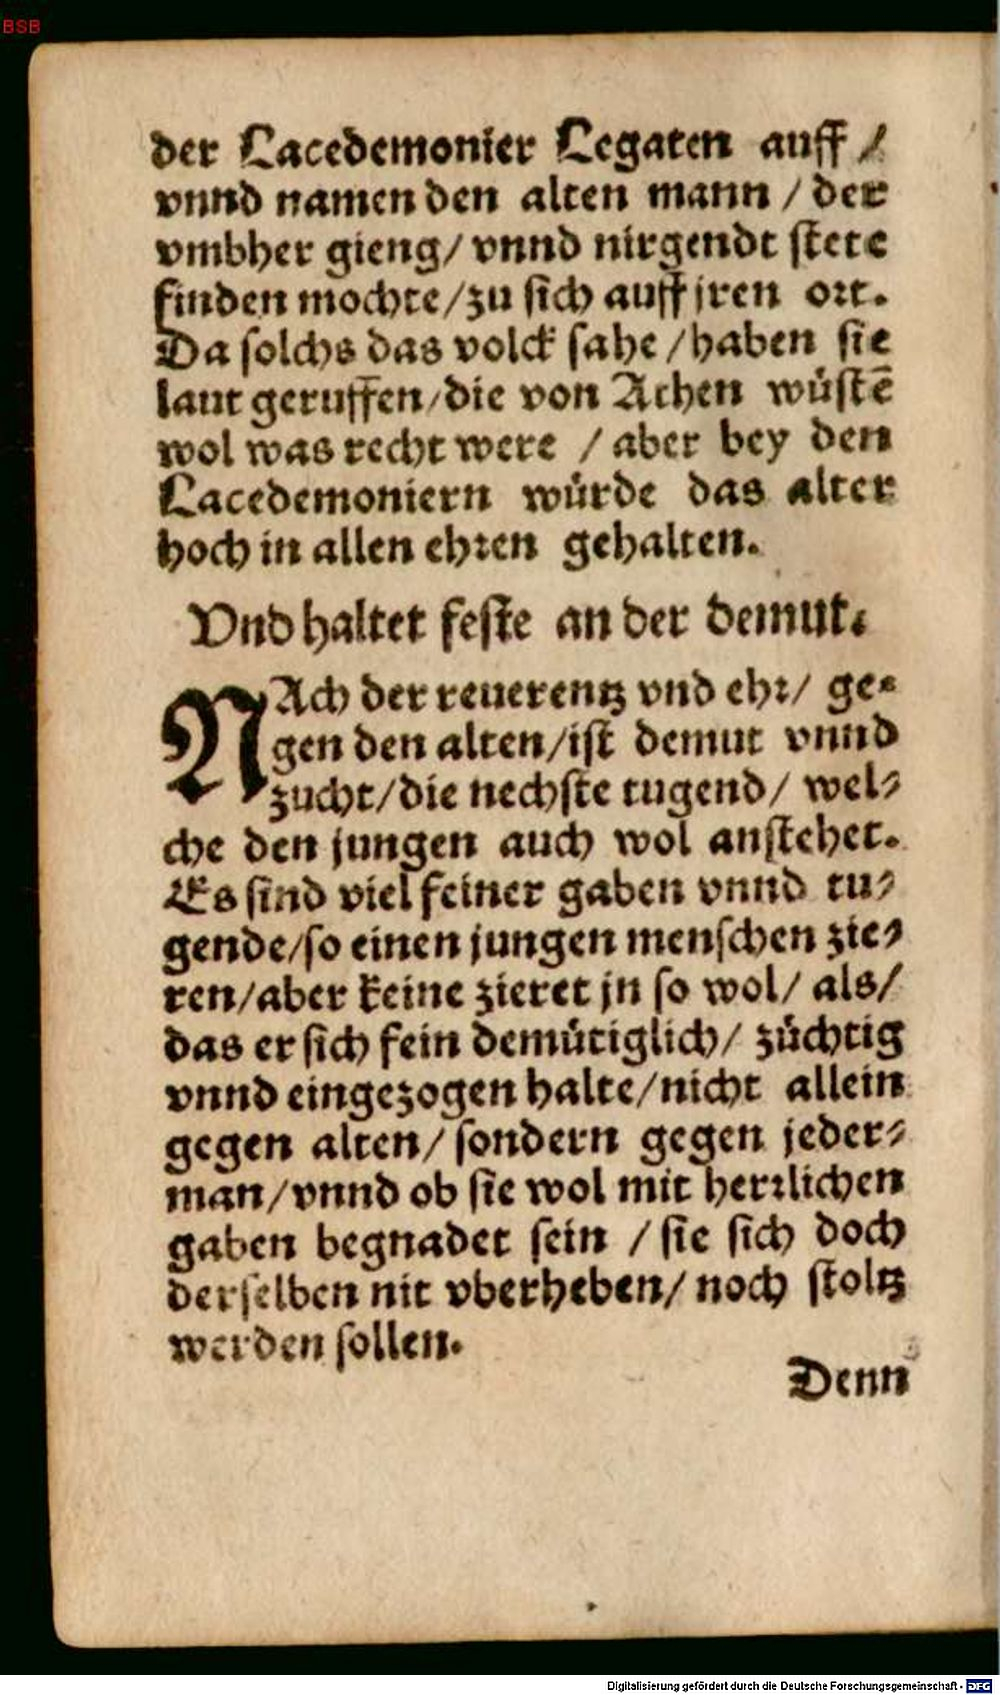 BSB
der Lacedemonier Legaten auff /
vnnd namen den alten mann / der
vmbher gieng / vnnd nirgendt stete
finden mochte / zu sich auff jren ort.
Da solchs das volck sahe / haben sie
laut geruffen / die von Athen wüstē
wol was recht were / aber bey den
Lacedemoniern würde das alter
hoch in allen ehren gehalten.
Vnd haltet feste an der demut.
NAch der reuerentz vnd ehr / ge-
gen den alten / ist demut vnnd
zucht / die nechste tugend / wel-
che den jungen auch wol anstehet.
Es sind viel feiner gaben vnnd tu-
gende / so einen jungen menschen zie-
ren / aber keine zieret jn so wol / als /
das er sich fein demütiglich / züchtig
vnnd eingezogen halte / nicht allein
gegen alten / sondern gegen jeder-
man / vnnd ob sie wol mit herrlichen
gaben begnadet sein / sie sich doch
derselben nit vberheben / noch stoltz
werden sollen.
Denn
Digitalisierung gefördert durch die Deutsche Forschungsgemeinschaft - DFG